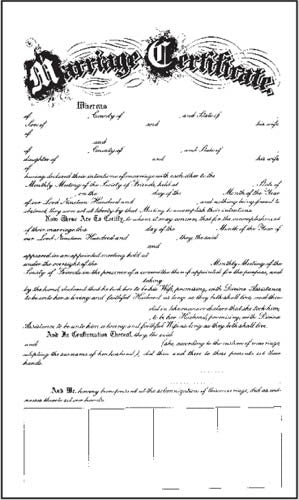 Marriage Certificate.
Whereas
of , County of , and State of
Son of and his wife
of
and
of , County of , and State of
daughter of and his wife
of
having declared their intentions of marriage with each other to the
Monthly Meeting of the Society of Friends, held at , State of
, on the day of the Month of the Year
of our Lord Nineteen Hundred and , and nothing being found to
obstruct, they were set at liberty by that Meeting to accomplish their intentions.
Now These Are To Certify, to whom it may concern, that for the accomplishment
of their marriage this day of the Month of the Year of
our Lord Nineteen Hundred and , they, the said
and
appeared in an appointed meeting held at
under the oversight of the Monthly Meeting of the
Society of Friends in the presence of a committee then appointed for the purpose, and
taking
by the hand, declared that he took her to be his Wife, promising, with Divine Assistance
to be unto her a loving and faithful Husband so long as they both shall live, and then
did in like manner declare that she took him,
to be her Husband, promising, with Divine
Assistance to be unto him a loving and faithful Wife so long as they both shall live.
And In Confirmation Thereof, they, the said
and (she, according to the custom of marriage,
adopting the surname of her husband), did then and there to these presents set their
hands.
And We, having been present at the solemnization of this marriage, did as wit-
nesses thereto set our hands.